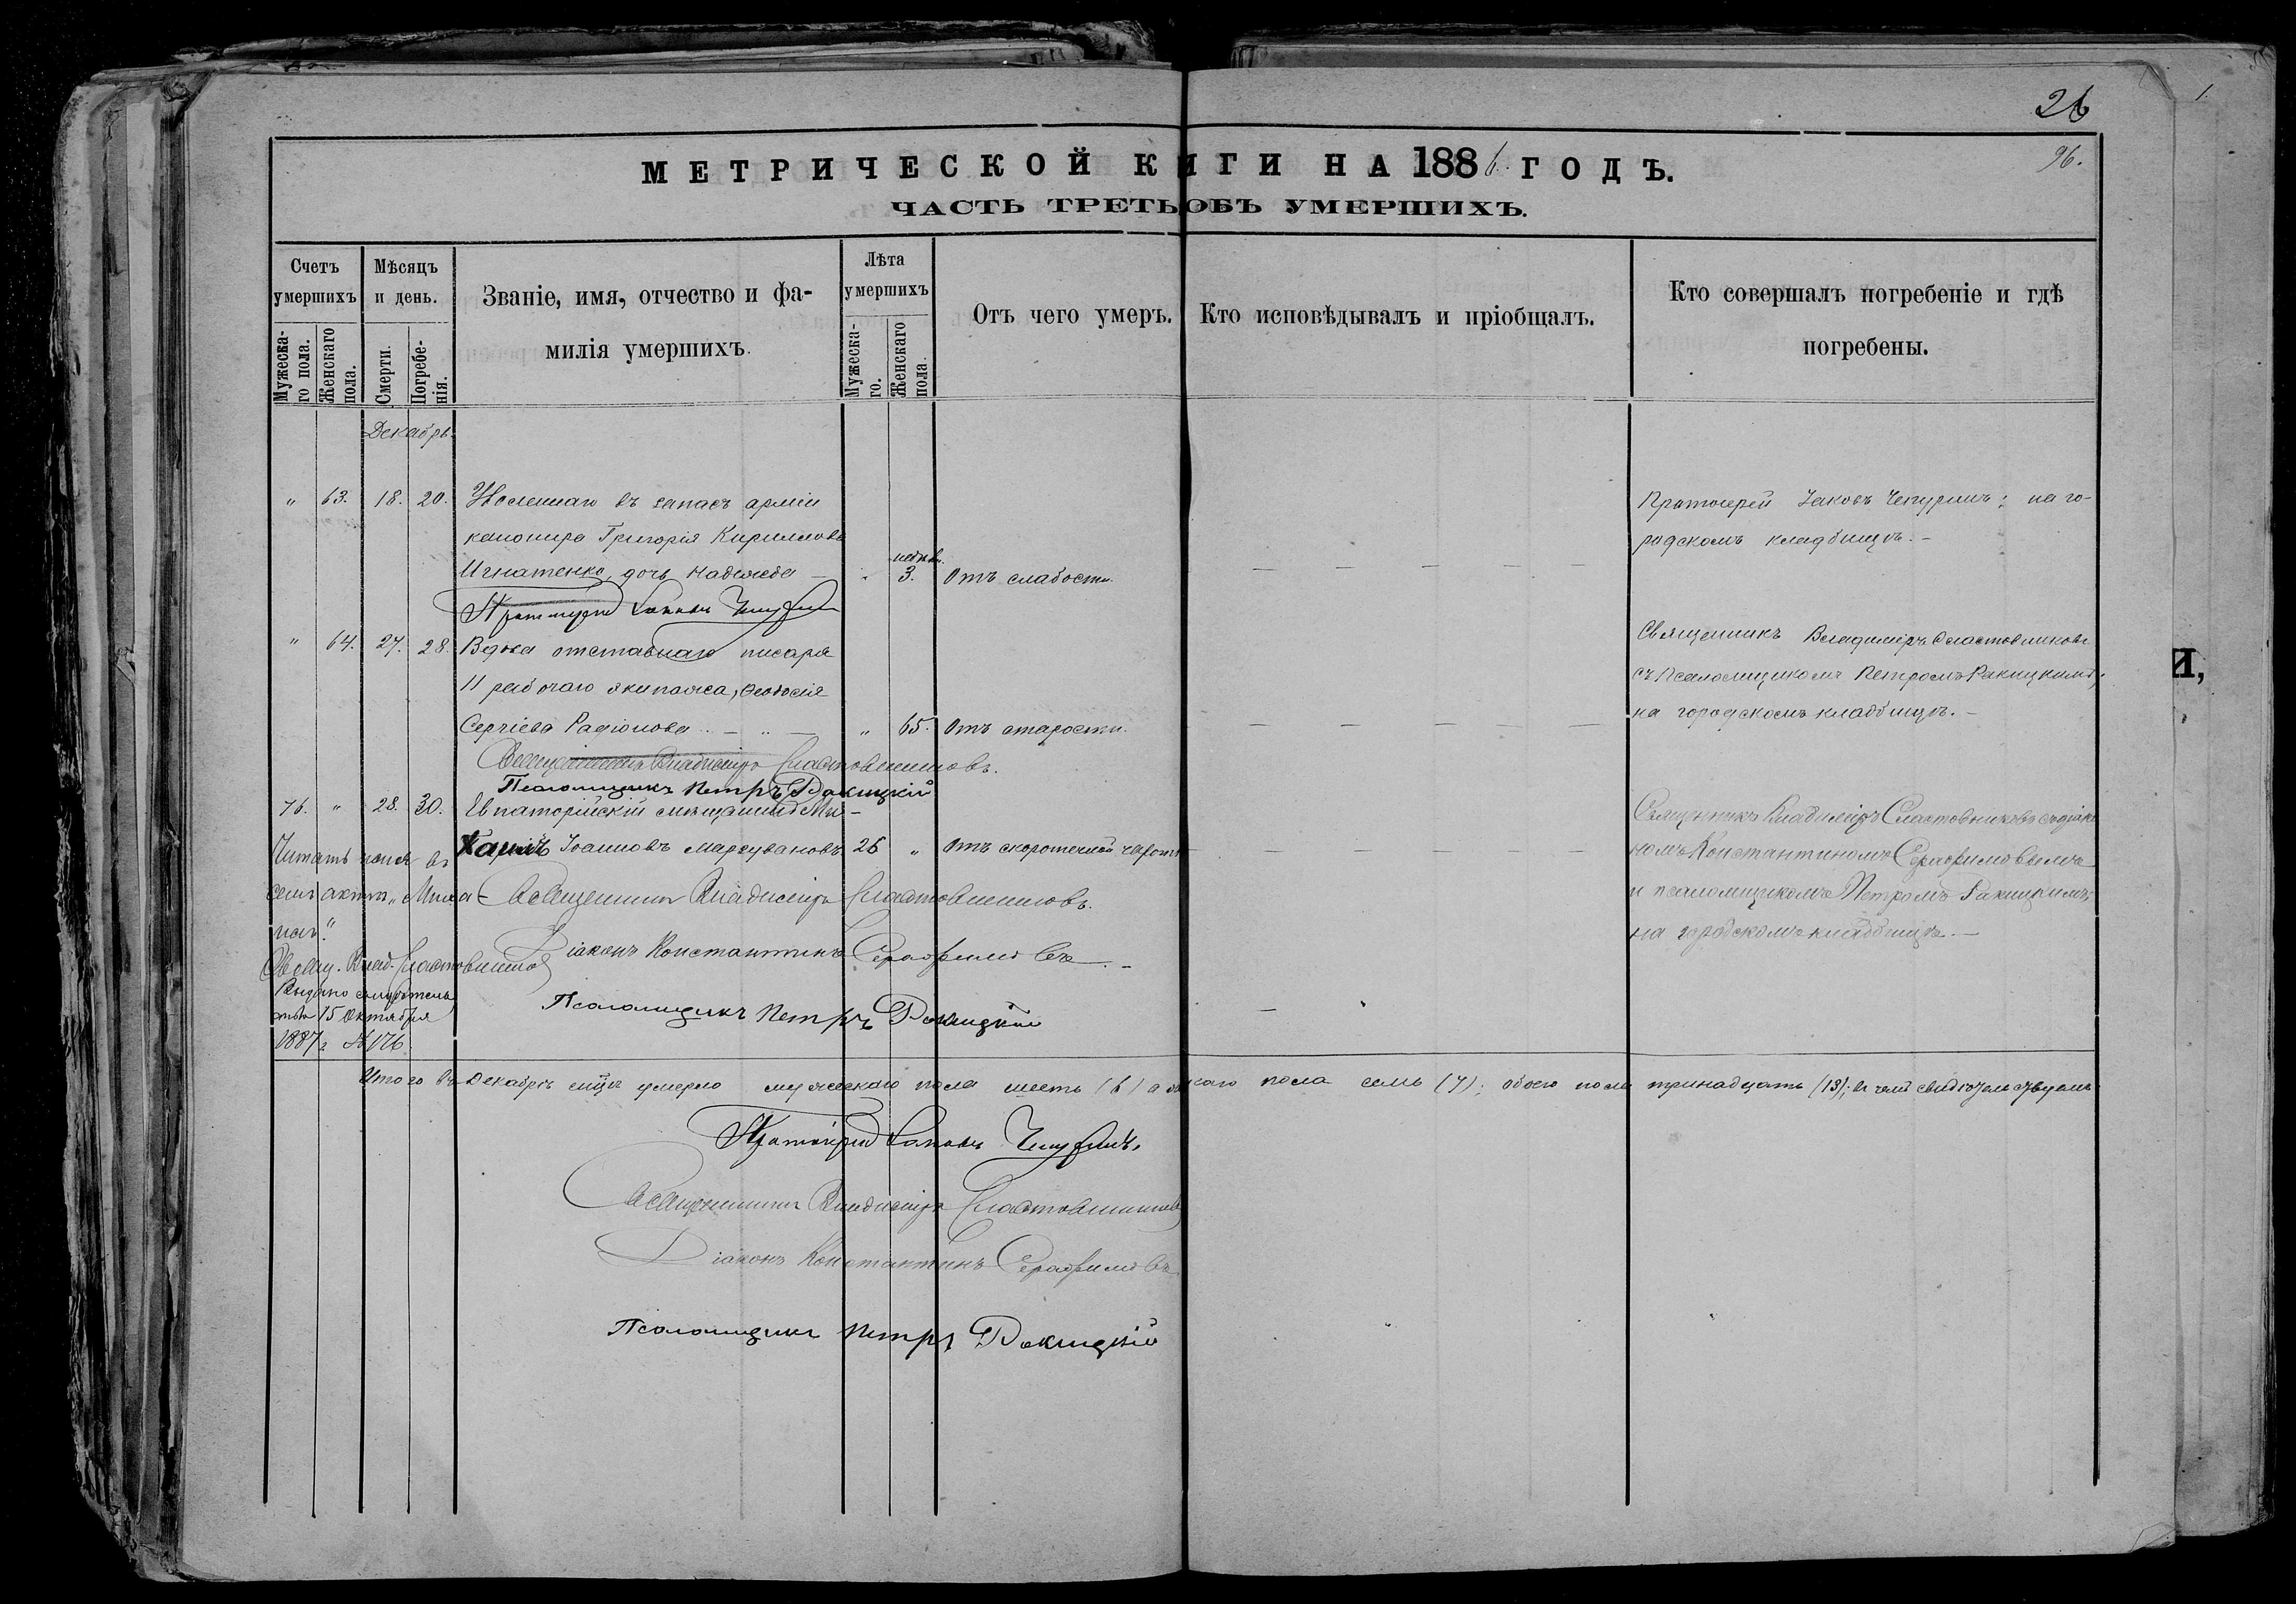 26
1.
МЕТРИЧЕСКОЙ КНИГИ НА 1886. ГОДЪ.
96.
ЧАСТЬ ТРЕТЬЯ ОБЪ УМЕРШИХЪ.
Счетъ умершихъ
Мужеска-го пола.
Женскаго пола.
Мѣсяцъ и день.
Смерти.
Погребе-нія.
Званіе, имя, отчество и фа-
милія умершихъ.
Лѣта умершихъ
Мужеска-го.
Женскаго пола
Отъ чего умеръ.
Кто исповѣдывалъ и пріобщалъ.
Кто совершалъ погребеніе и гдѣ
погребены.
И,
Декабрь.
" 63. 18. 20. Уволеннаго въ запасъ арміи
канонира Григорія Кириллова
Игнатенко, дочь Надежда — " 3. недѣли. Отъ слабости.
Протоіерей Іаковъ Чепуринъ; на го-
родскомъ кладбищѣ. —
Протоіерей Іаковъ Чепуринъ
" 64. 27. 28. Вдова отставнаго писаря
11 рабочаго экипажа, Ѳеодосія
Сергіева Радіонова — " — " 65. Отъ старости.
Священникъ Владиміръ Сластовниковъ
съ Псаломщикомъ Петромъ Ракицкимъ;
на городскомъ кладбищѣ. —
Священникъ Владиміръ Сластовниковъ.
Псаломщикъ Петръ Ракицкій
76. " 28. 30. Евпаторійскій мѣщанинъ Ми-
Іоанновъ 26 " Отъ скоротечной чахотки
Священникъ Владиміръ Сластовниковъ съ діако
номъ Константиномъ Серафимовымъ
и псаломщикомъ Петромъ Ракицкимъ;
на городскомъ кладбищѣ. —
Читать имя въ
семъ актѣ „Миха-
илъ."
Свящ. Влад. Сластовниковъ
Выдано свидѣтель
ство 15 Октября
1887 г. № 176.
Священникъ Владиміръ Сластовниковъ.
Діаконъ Константинъ Серафимовъ. —
Псаломщикъ Петръ Ракицкій
Итого въ Декабрѣ мцѣ умерло мужескаго пола шесть (6) а женскаго пола семь (7); обоего пола тринадцать (13); въ чемъ свидѣтельствуемъ
Протоіерей Іаковъ Чепуринъ.
Священникъ Владиміръ Сластовниковъ
Діаконъ Константинъ Серафимовъ
Псаломщикъ Петръ Ракицкій